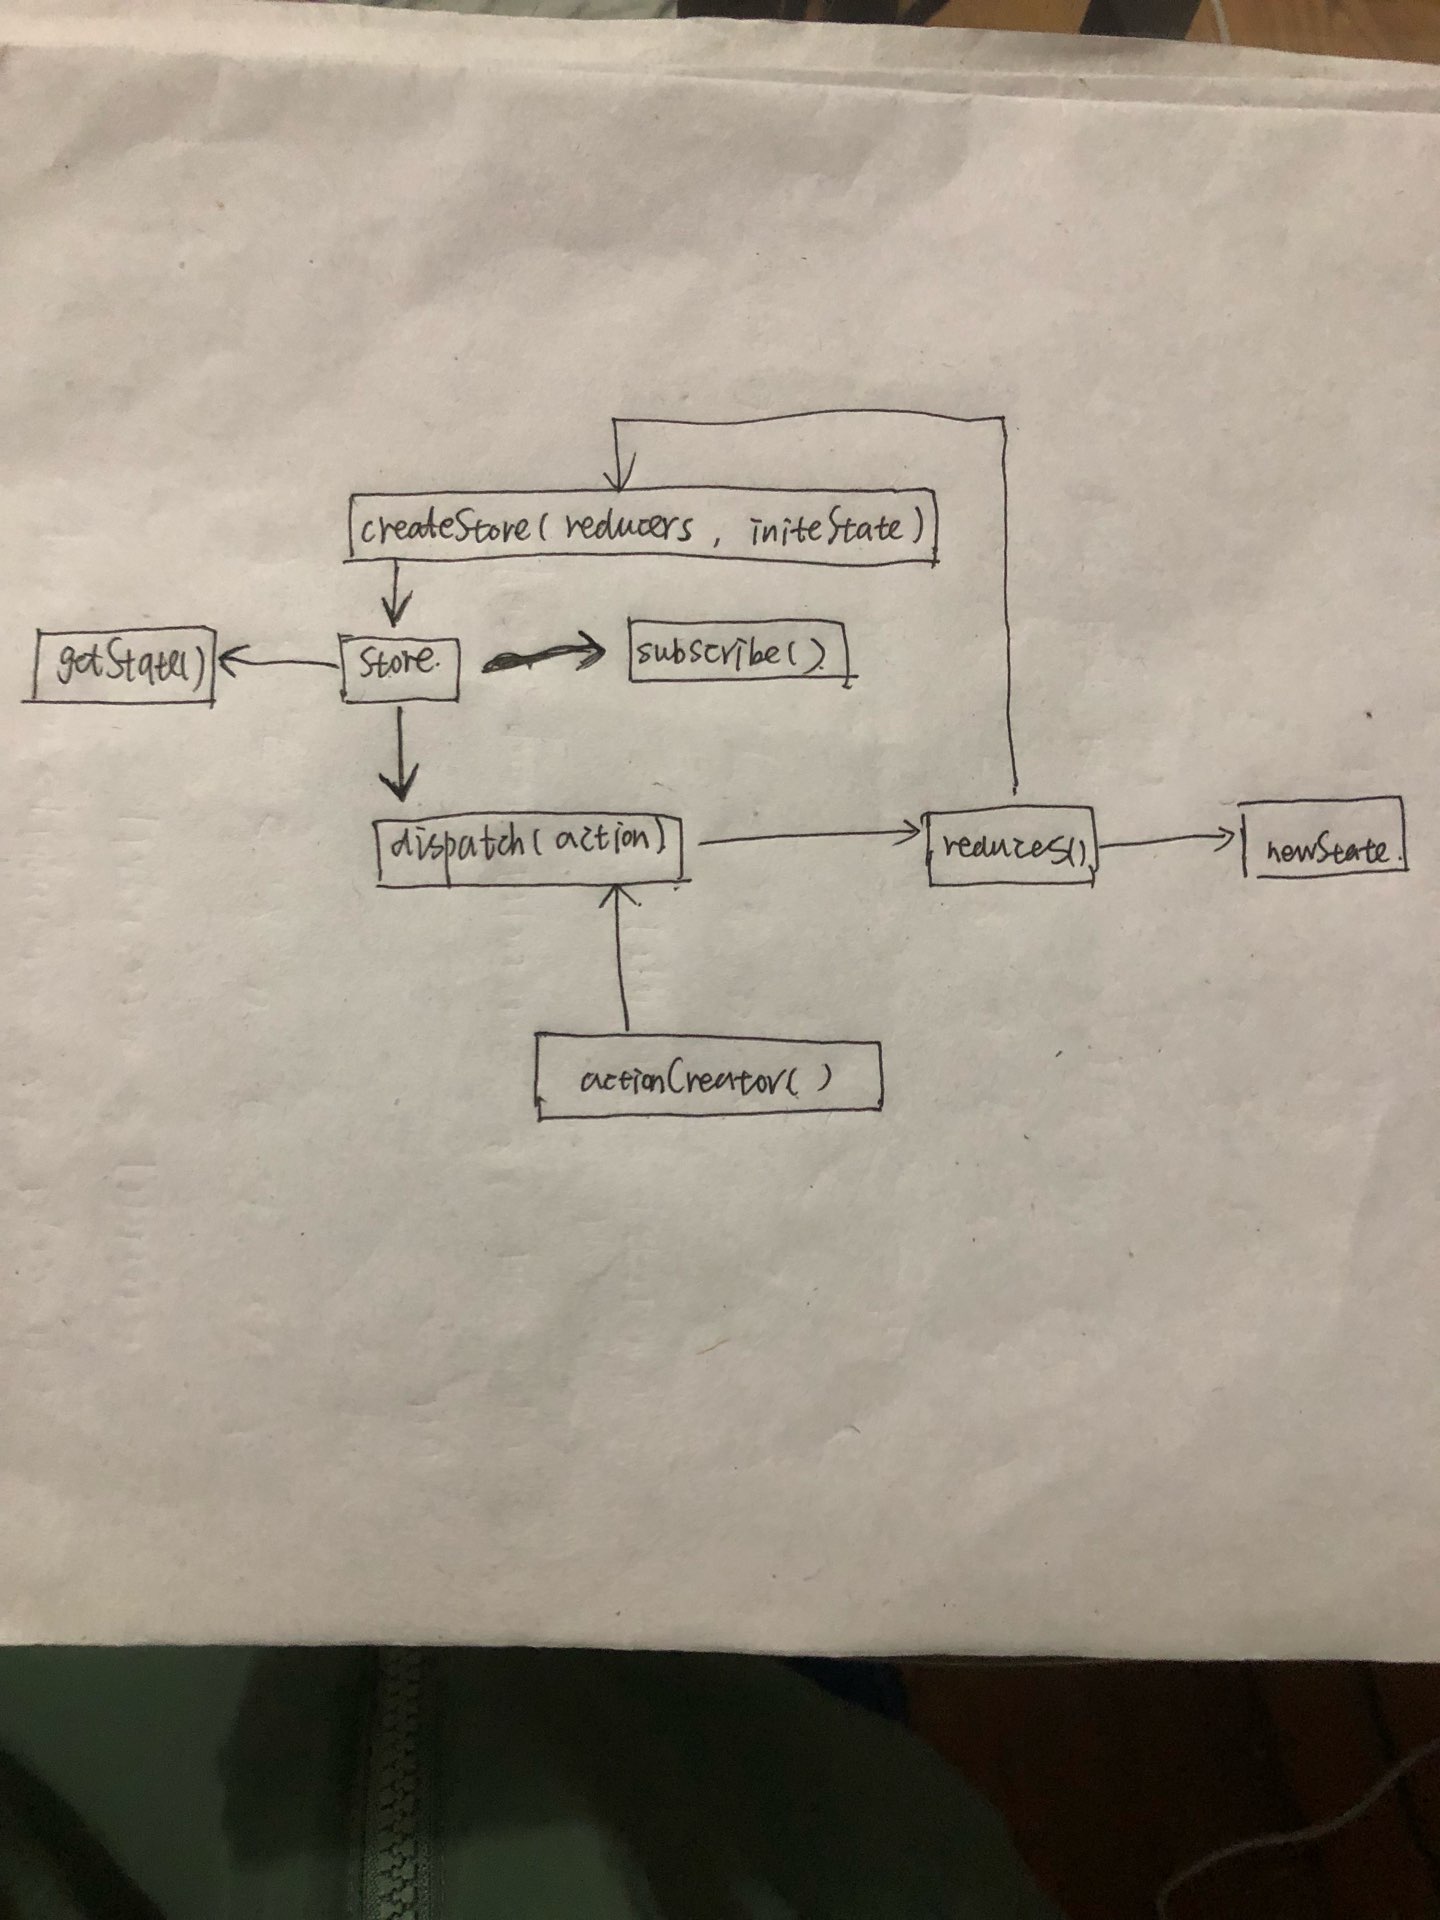 createStore( reducers , initeState )
getState()
store.
subscribe( ).
dispatch( action )
reduces().
newState.
actionCreator( )